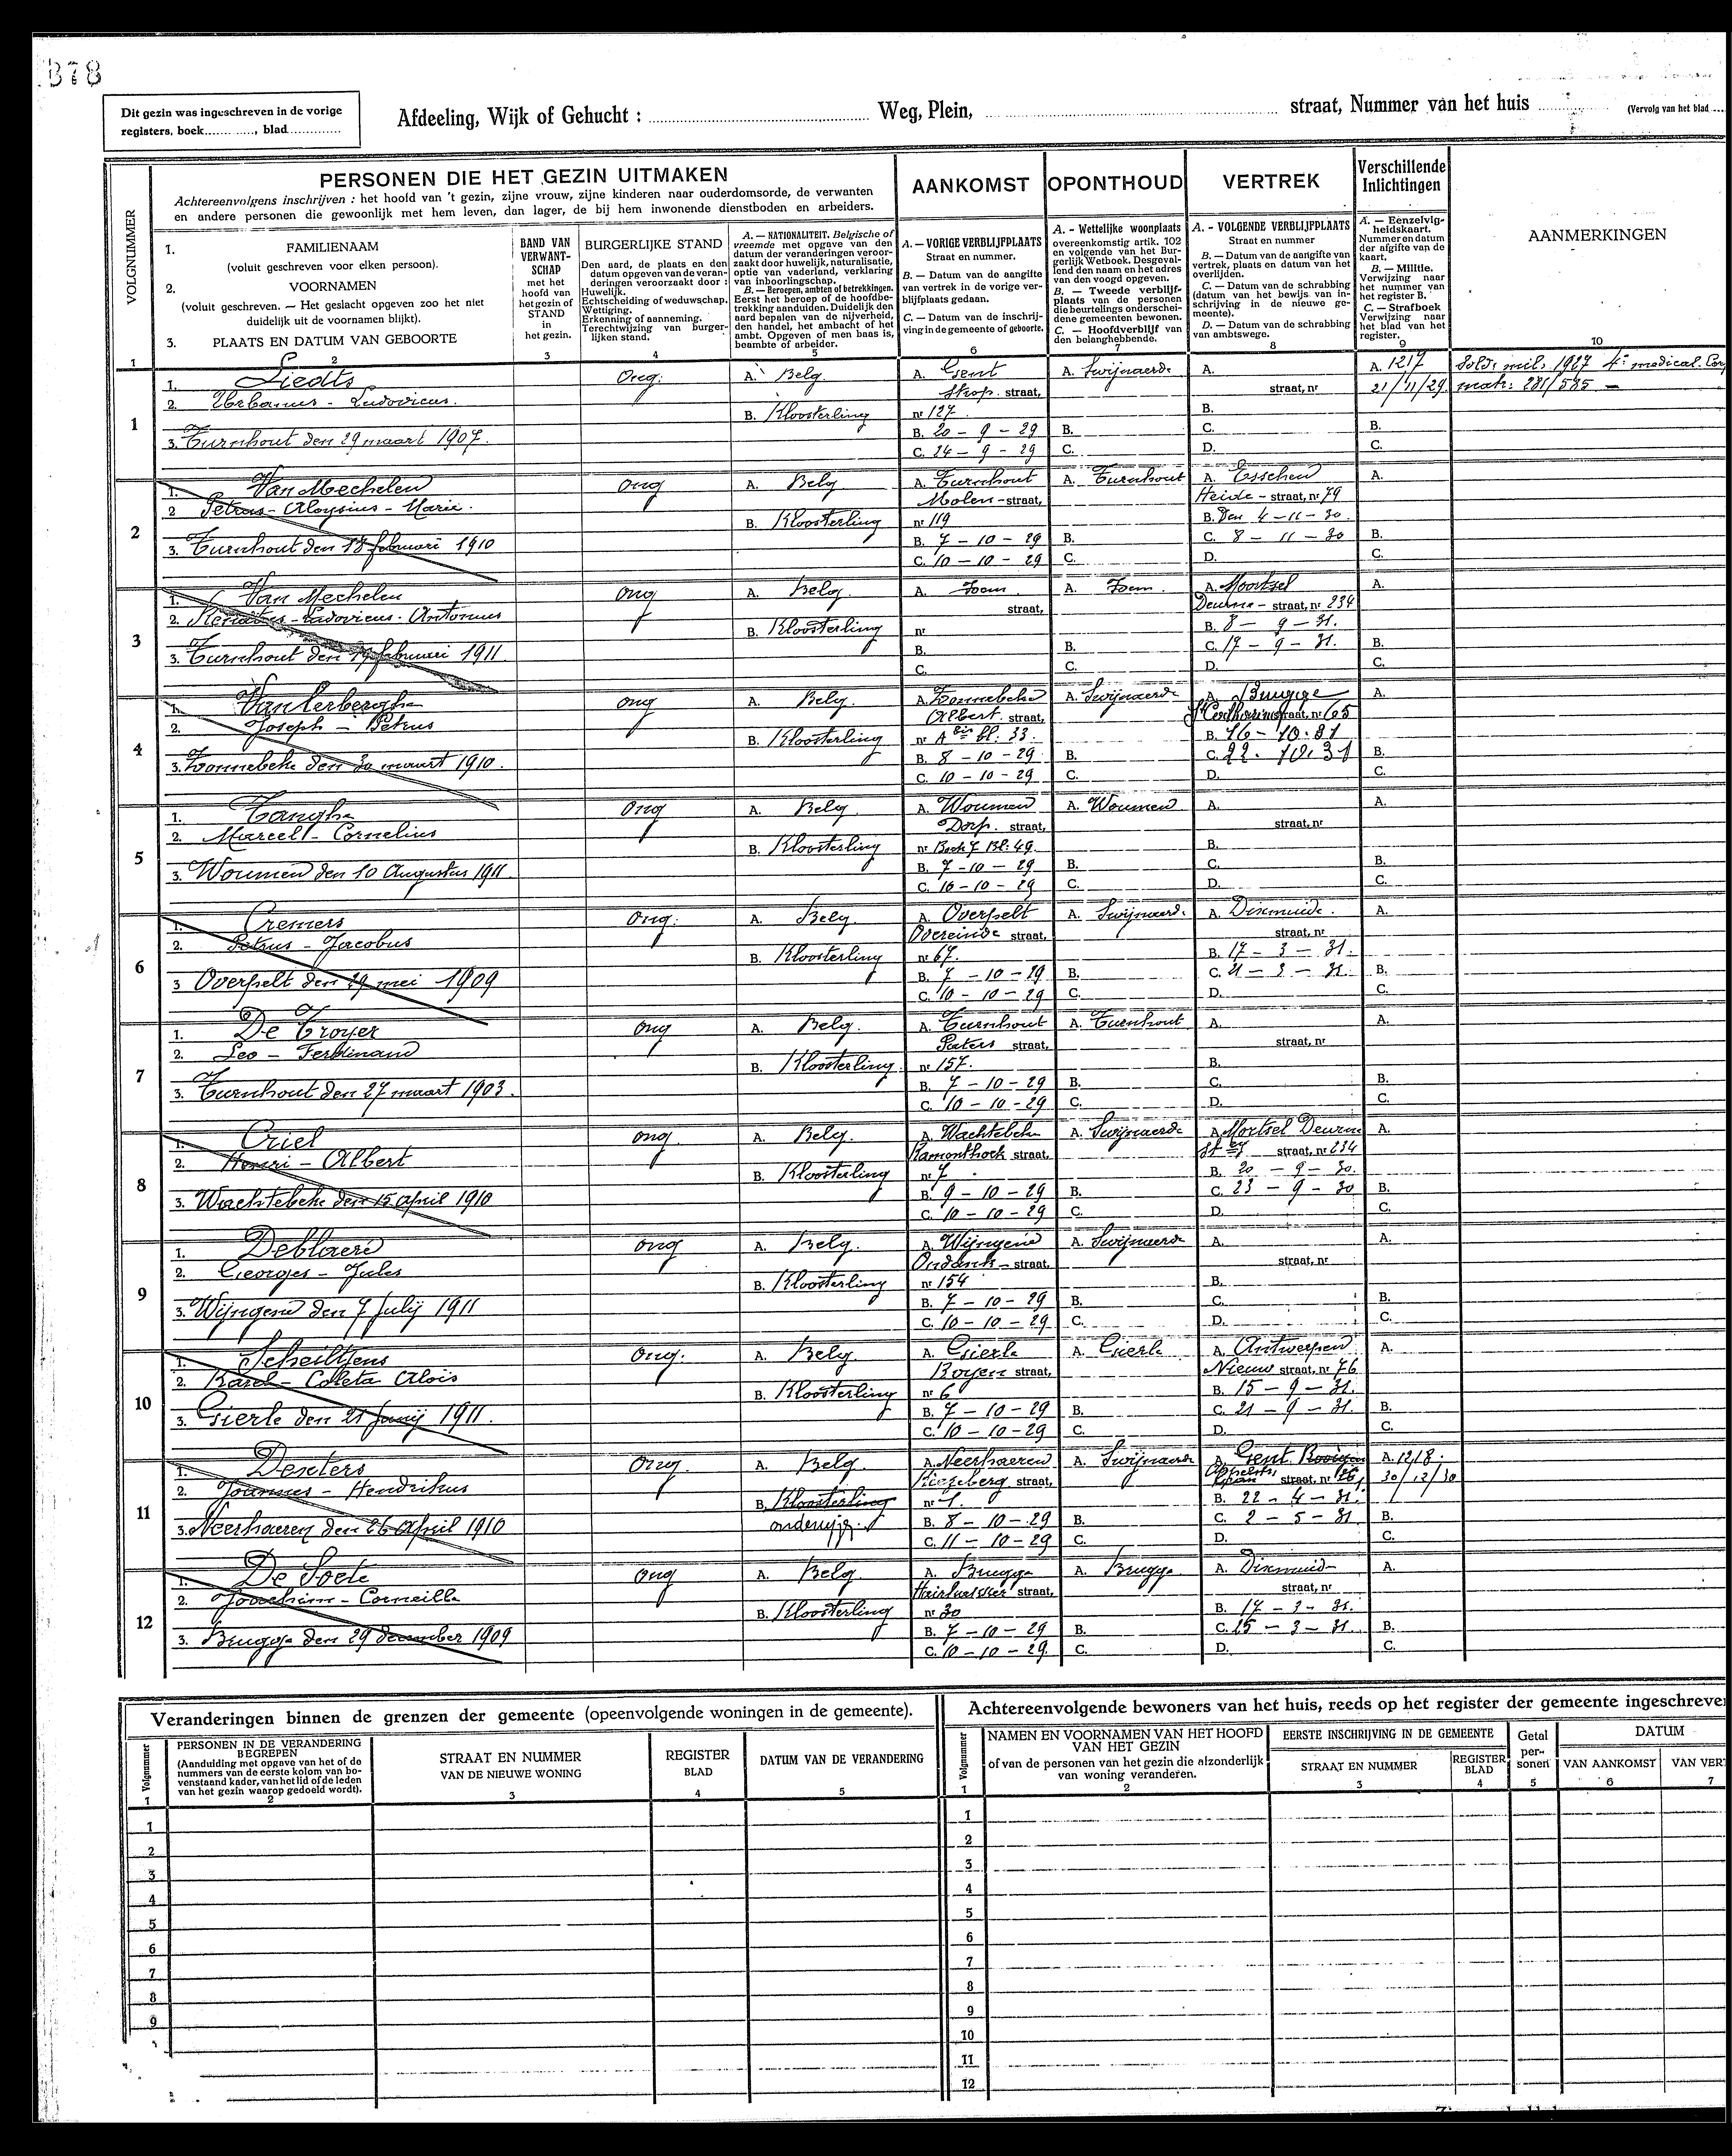 B78
Dit gezin was ingeschreven in de vorige
registers, boek............, blad.............
Afdeeling, Wijk of Gehucht : ............ Weg, Plein, ............ straat, Nummer van het huis ............ (Vervolg van het blad ....
VOLGNUMMER
PERSONEN DIE HET GEZIN UITMAKEN
Achtereenvolgens inschrijven : het hoofd van 't gezin, zijne vrouw, zijne kinderen naar ouderdomsorde, de verwanten
en andere personen die gewoonlijk met hem leven, dan lager, de bij hem inwonende dienstboden en arbeiders.
AANKOMST
OPONTHOUD
VERTREK
Verschillende
Inlichtingen
1. FAMILIENAAM
(voluit geschreven voor elken persoon).
2. VOORNAMEN
(voluit geschreven. — Het geslacht opgeven zoo het niet
duidelijk uit de voornamen blijkt).
3. PLAATS EN DATUM VAN GEBOORTE
BAND VAN
VERWANT-
SCHAP
met het
hoofd van
het gezin of
STAND
in
het gezin.
BURGERLIJKE STAND
Den aard, de plaats en den
datum opgeven van de veran-
deringen veroorzaakt door :
Huwelijk.
Echtscheiding of weduwschap.
Wettiging.
Erkenning of aanneming.
Terechtwijzing van burger-
lijken stand.
A. — NATIONALITEIT. Belgische of
vreemde met opgave van den
datum der veranderingen veroor-
zaakt door huwelijk, naturalisatie,
optie van vaderland, verklaring
van inboorlingschap.
B. — Beroepen, ambten of betrekkingen.
Eerst het beroep of de hoofdbe-
trekking aanduiden. Duidelijk den
aard bepalen van de nijverheid,
den handel, het ambacht of het
ambt. Opgeven of men baas is,
beambte of arbeider.
A. — VORIGE VERBLIJFPLAATS
Straat en nummer.
B. — Datum van de aangifte
van vertrek in de vorige ver-
blijfplaats gedaan.
C. — Datum van de inschrij-
ving in de gemeente of geboorte.
A. - Wettelijke woonplaats
overeenkomstig artik. 102
en volgende van het Bur-
gerlijk Wetboek. Desgeval-
lend den naam en het adres
van den voogd opgeven.
B. — Tweede verblijf-
plaats van de personen
die beurtelings onderschei-
dene gemeenten bewonen.
C. — Hoofdverblijf van
den belanghebbende.
A. - VOLGENDE VERBLIJFPLAATS
Straat en nummer
B. — Datum van de aangifte van
vertrek, plaats en datum van het
overlijden.
C. — Datum van de schrabbing
(datum van het bewijs van in-
schrijving in de nieuwe ge-
meente).
D. — Datum van de schrabbing
van ambtswege.
A. — Eenzelvig-
heidskaart.
Nummer en datum
der afgifte van de
kaart.
B. — Militie.
Verwijzing naar
het nummer van
het register B.
C. — Strafboek
Verwijzing naar
het blad van het
register.
AANMERKINGEN
1 2 3 4 5 6 7 8 9 10
1
1. Liedts Ong: A. Belg. A. Gent A. Swijnaerde A. A. 1217 Sold. mil. 1927 4e medical. Corp
2. Urbanus - Ludovicus. Strop. straat, straat, nr 21/11/29 matr: 281/585 —
B. Kloosterling nr 127. B.
3. Turnhout den 29 maart 1907. B. 20 - 9 - 29 B. C. B.
C. 24 - 9 - 29 C. D. C.
2
1. Van Mechelen ong A. Belg A. Turnhout A. Turnhout A. Esschen A.
2 Petrus - Aloysius - Marie. Molen - straat, Heide - straat, nr 79
B. Kloosterling nr 119 B. Den 4 - 11 - 30.
3. Turnhout den 18 februari 1910 B. 7 - 10 - 29 B. C. 8 - 11 - 30 B.
C. 10 - 10 - 29 C. D. C.
3
1. Van Mechelen ong A. Belg A. Idem. A. Idem. A. Mortsel A.
2. Ludovicus - Antonius straat, Deurne - straat, nr 234
B. Kloosterling nr B. 8 - 9 - 31.
3. Turnhout den 19 februari 1911. B. B. C. 17 - 9 - 31. B.
C. C. D. C.
4
1. Van Lerberghe ong A. Belg. A. Zonnebeke A. Swijnaerde A. Brugge A.
2. Joseph - Petrus Albert. straat, St Catharina straat, nr 165
B. Kloosterling nr A bis bl. 33. B. 16 - 10. 31
3. Zonnebeke den 30 maart 1910. B. 8 - 10 - 29 B. C. 22. 10. 31 B.
C. 10 - 10 - 29 C. D. C.
5
1. Tanghe Ong A. Belg A. Woumen A. Woumen A. A.
2. Marcel - Cornelius Dorp. straat, straat, nr
B. Kloosterling nr Boek 7 Bl: 49. B.
3. Woumen den 10 Augustus 1911. B. 7 - 10 - 29 B. C. B.
C. 10 - 10 - 29 C. D. C.
6
1. Cremers Ong: A. Belg. A. Overpelt A. Swijnaerde A. Dixmuide. A.
2. Petrus - Jacobus Overeinde straat, straat, nr
B. Kloosterling nr 67. B. 17 - 3 - 31.
3 Overpelt den 29 mei 1909 B. 7 - 10 - 29 B. C. 21 - 3 - 31. B.
C. 10 - 10 - 29 C. D. C.
7
1. De Troyer ong A. Belg. A. Turnhout A. Turnhout A. A.
2. Leo - Ferdinand Paters straat, straat, nr
B. Kloosterling. nr 157. B.
3. Turnhout den 27 maart 1903. B. 7 - 10 - 29 B. C. B.
C. 10 - 10 - 29 C. D. C.
8
1. Criel ong. A. Belg. A. Wachtebeke A. Swijnaerde A. Mortsel Deurne A.
2. Henri - Albert Ramonthoek straat, straat, nr 234
B. Kloosterling nr 7 B. 20 - 9 - 30.
3. Wachtebeke den 15 april 1910 B. 9 - 10 - 29 B. C. 23 - 9 - 30 B.
C. 10 - 10 - 29 C. D. C.
9
1. Deblaere ong A. Belg. A. Wijngene A. Swijnaerde A. A.
2. Georges - Jules straat, straat, nr
B. Kloosterling nr 154 B.
3. Wijngene den 7 Julij 1911 B. 7 - 10 - 29 B. C. B.
C. 10 - 10 - 29 C. D. C.
10
1. Scheiltjens Ong: A. Belg. A. Gierle A. Gierle A. Antwerpen A.
2. Karel - Coleta Alois Royen straat, Nieuw straat, nr 76
B. Kloosterling nr 6 B. 15 - 9 - 31.
3. Gierle den 21 Junij 1911. B. 7 - 10 - 29 B. C. 21 - 9 - 31. B.
C. 10 - 10 - 29 C. D. C.
11
1. Dexters Ong. A. Belg. A. Neerhaeren A. Swijnaerde A. Gent A. 1218.
2. Joannes - Hendrikus straat, straat, nr 26 30/12/30
B. Kloosterling nr 1. B. 22 - 4 - 31.
3. Neerhaeren den 26 April 1910 onderwijz. B. 8 - 10 - 29 B. C. 2 - 5 - 31 B.
C. 11 - 10 - 29 C. D. C.
12
1. De Soete ong A. Belg. A. Brugge A. Brugge A. Dixmuide A.
2. Joachim - Corneille straat, straat, nr
B. Kloosterling nr 30 B. 17 - 3 - 31.
3. Brugge den 29 december 1909 B. 7 - 10 - 29 B. C. 25 - 3 - 31. B.
C. 10 - 10 - 29. C. D. C.
Veranderingen binnen de grenzen der gemeente (opeenvolgende woningen in de gemeente).
Volgnummer
PERSONEN IN DE VERANDERING
BEGREPEN
(Aanduiding met opgave van het of de
nummers van de eerste kolom van bo-
venstaand kader, van het lid of de leden
van het gezin waarop gedoeld wordt).
STRAAT EN NUMMER
VAN DE NIEUWE WONING
REGISTER
BLAD
DATUM VAN DE VERANDERING
1 2 3 4 5
1
2
3
4
5
6
7
8
9
Achtereenvolgende bewoners van het huis, reeds op het register der gemeente ingeschreve
Volgnummer
NAMEN EN VOORNAMEN VAN HET HOOFD
VAN HET GEZIN
of van de personen van het gezin die afzonderlijk
van woning veranderen.
EERSTE INSCHRIJVING IN DE GEMEENTE
STRAAT EN NUMMER
REGISTER
BLAD
Getal
per-
sonen
DATUM
VAN AANKOMST
VAN VERT
1 2 3 4 5 6 7
1
2
3
4
5
6
7
8
9
10
11
12